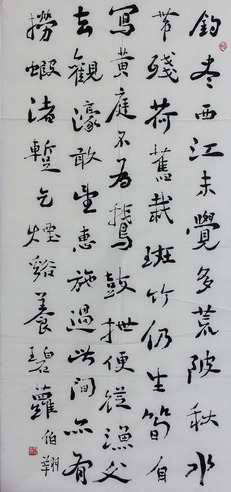 釣尽西江未覺多荒陂秋水
带殘荷舊栽班竹仍生筍自
寫黄庭不為鵞鼓枻便從漁父
去觀濠敢望惠施過此間亦有
撈蝦渚暫乞煙谿養碧蘿
伯翔